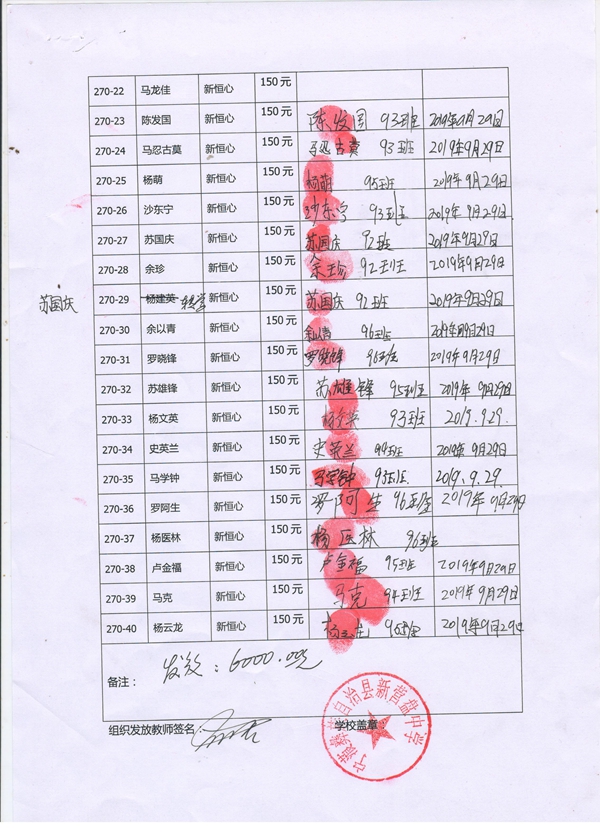 270-22 马龙佳 新恒心 150元
270-23 陈发国 新恒心 150元 陈发国 93班 2019年9月29日
270-24 马忍古莫 新恒心 150元 马忍古莫 93班 2019年9月29日
270-25 杨萌 新恒心 150元 杨萌 95班 2019年9月29日
270-26 沙东宁 新恒心 150元 沙东宁 93班 2019年9月29日
270-27 苏国庆 新恒心 150元 苏国庆 92班 2019年9月29日
270-28 余珍 新恒心 150元 余珍 92班 2019年9月29日
苏国庆 270-29 杨建英 转学 新恒心 150元 苏国庆 92班 2019年9月29日
270-30 余以青 新恒心 150元 余以青 96班 2019年9月29日
270-31 罗晓锋 新恒心 150元 罗晓锋 96班 2019年9月29日
270-32 苏雄锋 新恒心 150元 苏雄锋 95班 2019年9月29日
270-33 杨文英 新恒心 150元 杨文英 93班 2019.9.29.
270-34 史英兰 新恒心 150元 史英兰 班 2019年9月29日
270-35 马学钟 新恒心 150元 马学钟 93班 2019.9.29.
270-36 罗阿生 新恒心 150元 罗阿生 96班 2019年9月29日
270-37 杨医林 新恒心 150元 杨医林 96班
270-38 卢金福 新恒心 150元 卢金福 95班 2019年9月29日
270-39 马克 新恒心 150元 马克 94班 2019年9月29日
270-40 杨云龙 新恒心 150元 杨云龙 96班 2019年9月29日
备注： 发放：6000.00元
组织发放教师签名： 学校盖章：
宁蒗彝族自治县新营盘中学